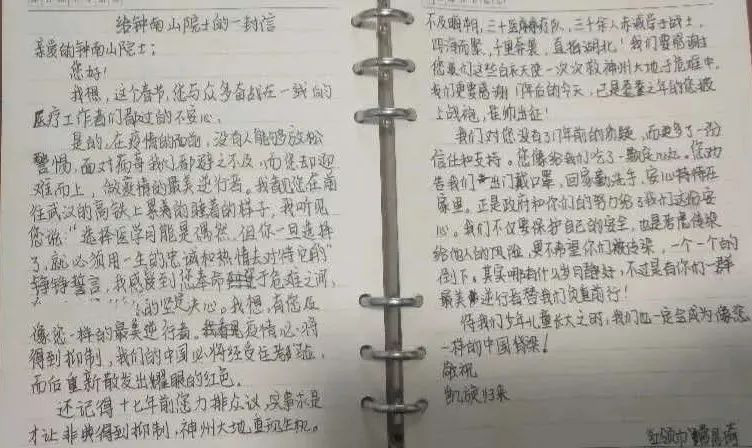 给钟南山院士的一封信
亲爱的钟南山院士:
您好!
我想,这个春节,您与众多奋战在一线的
医疗工作者们都过的不安心。
是的,在疫情的面前,没有人能够放松
警惕,面对病毒我们都避之不及,而您却迎
难而上,做疫情的最美逆行者。我看见您在前
往武汉的高铁上累着的睡着的样子,我听见
您说:“选择医学可能是偶然,但你一旦选择
了,就必须用一生的忠诚和热情去对待它的”
铮铮誓言,我感受到您奉命于危难之间,
的坚定决心。我想,有您及
像您一样的最美逆行者。我看见疫情必将
得到抑制,我们的中国必将经受住考验,
而后重新散发出耀眼的红色。
还记得十七年前您力排众议,实事求是
才让非典得到抑制,神州大地重现生机。
不及明朝,三十医疗队,三千军人赤诚
四海而聚,千里奔袭,直指湖北!我们要感谢
您及们这些白衣天使一次次救神州大地于危难中,
我们更要感谢17年后的今天,已是耄耋之年的您披
上战袍,挂帅出征!
我们对您没有了17年前的质疑,而更多了一份
信任和支持。您像给我们吃了一颗定心丸。您劝
告我们出门戴口罩,回家勤洗手,安心待待在
家里。正是政府和你们的努力给了我们这份安
心。我们不仅要保护自己的安全,也是害怕传染
给他人的风险,更不希望你们被传染,一个一个的
倒下。其实哪有什么岁月静好,不过是有你们一群
最美逆行者替我们负重前行!
待我们少年儿童长大之时,我们也一定会成为像您
一样的中国脊梁!
敬祝
凯旋归来
红领巾